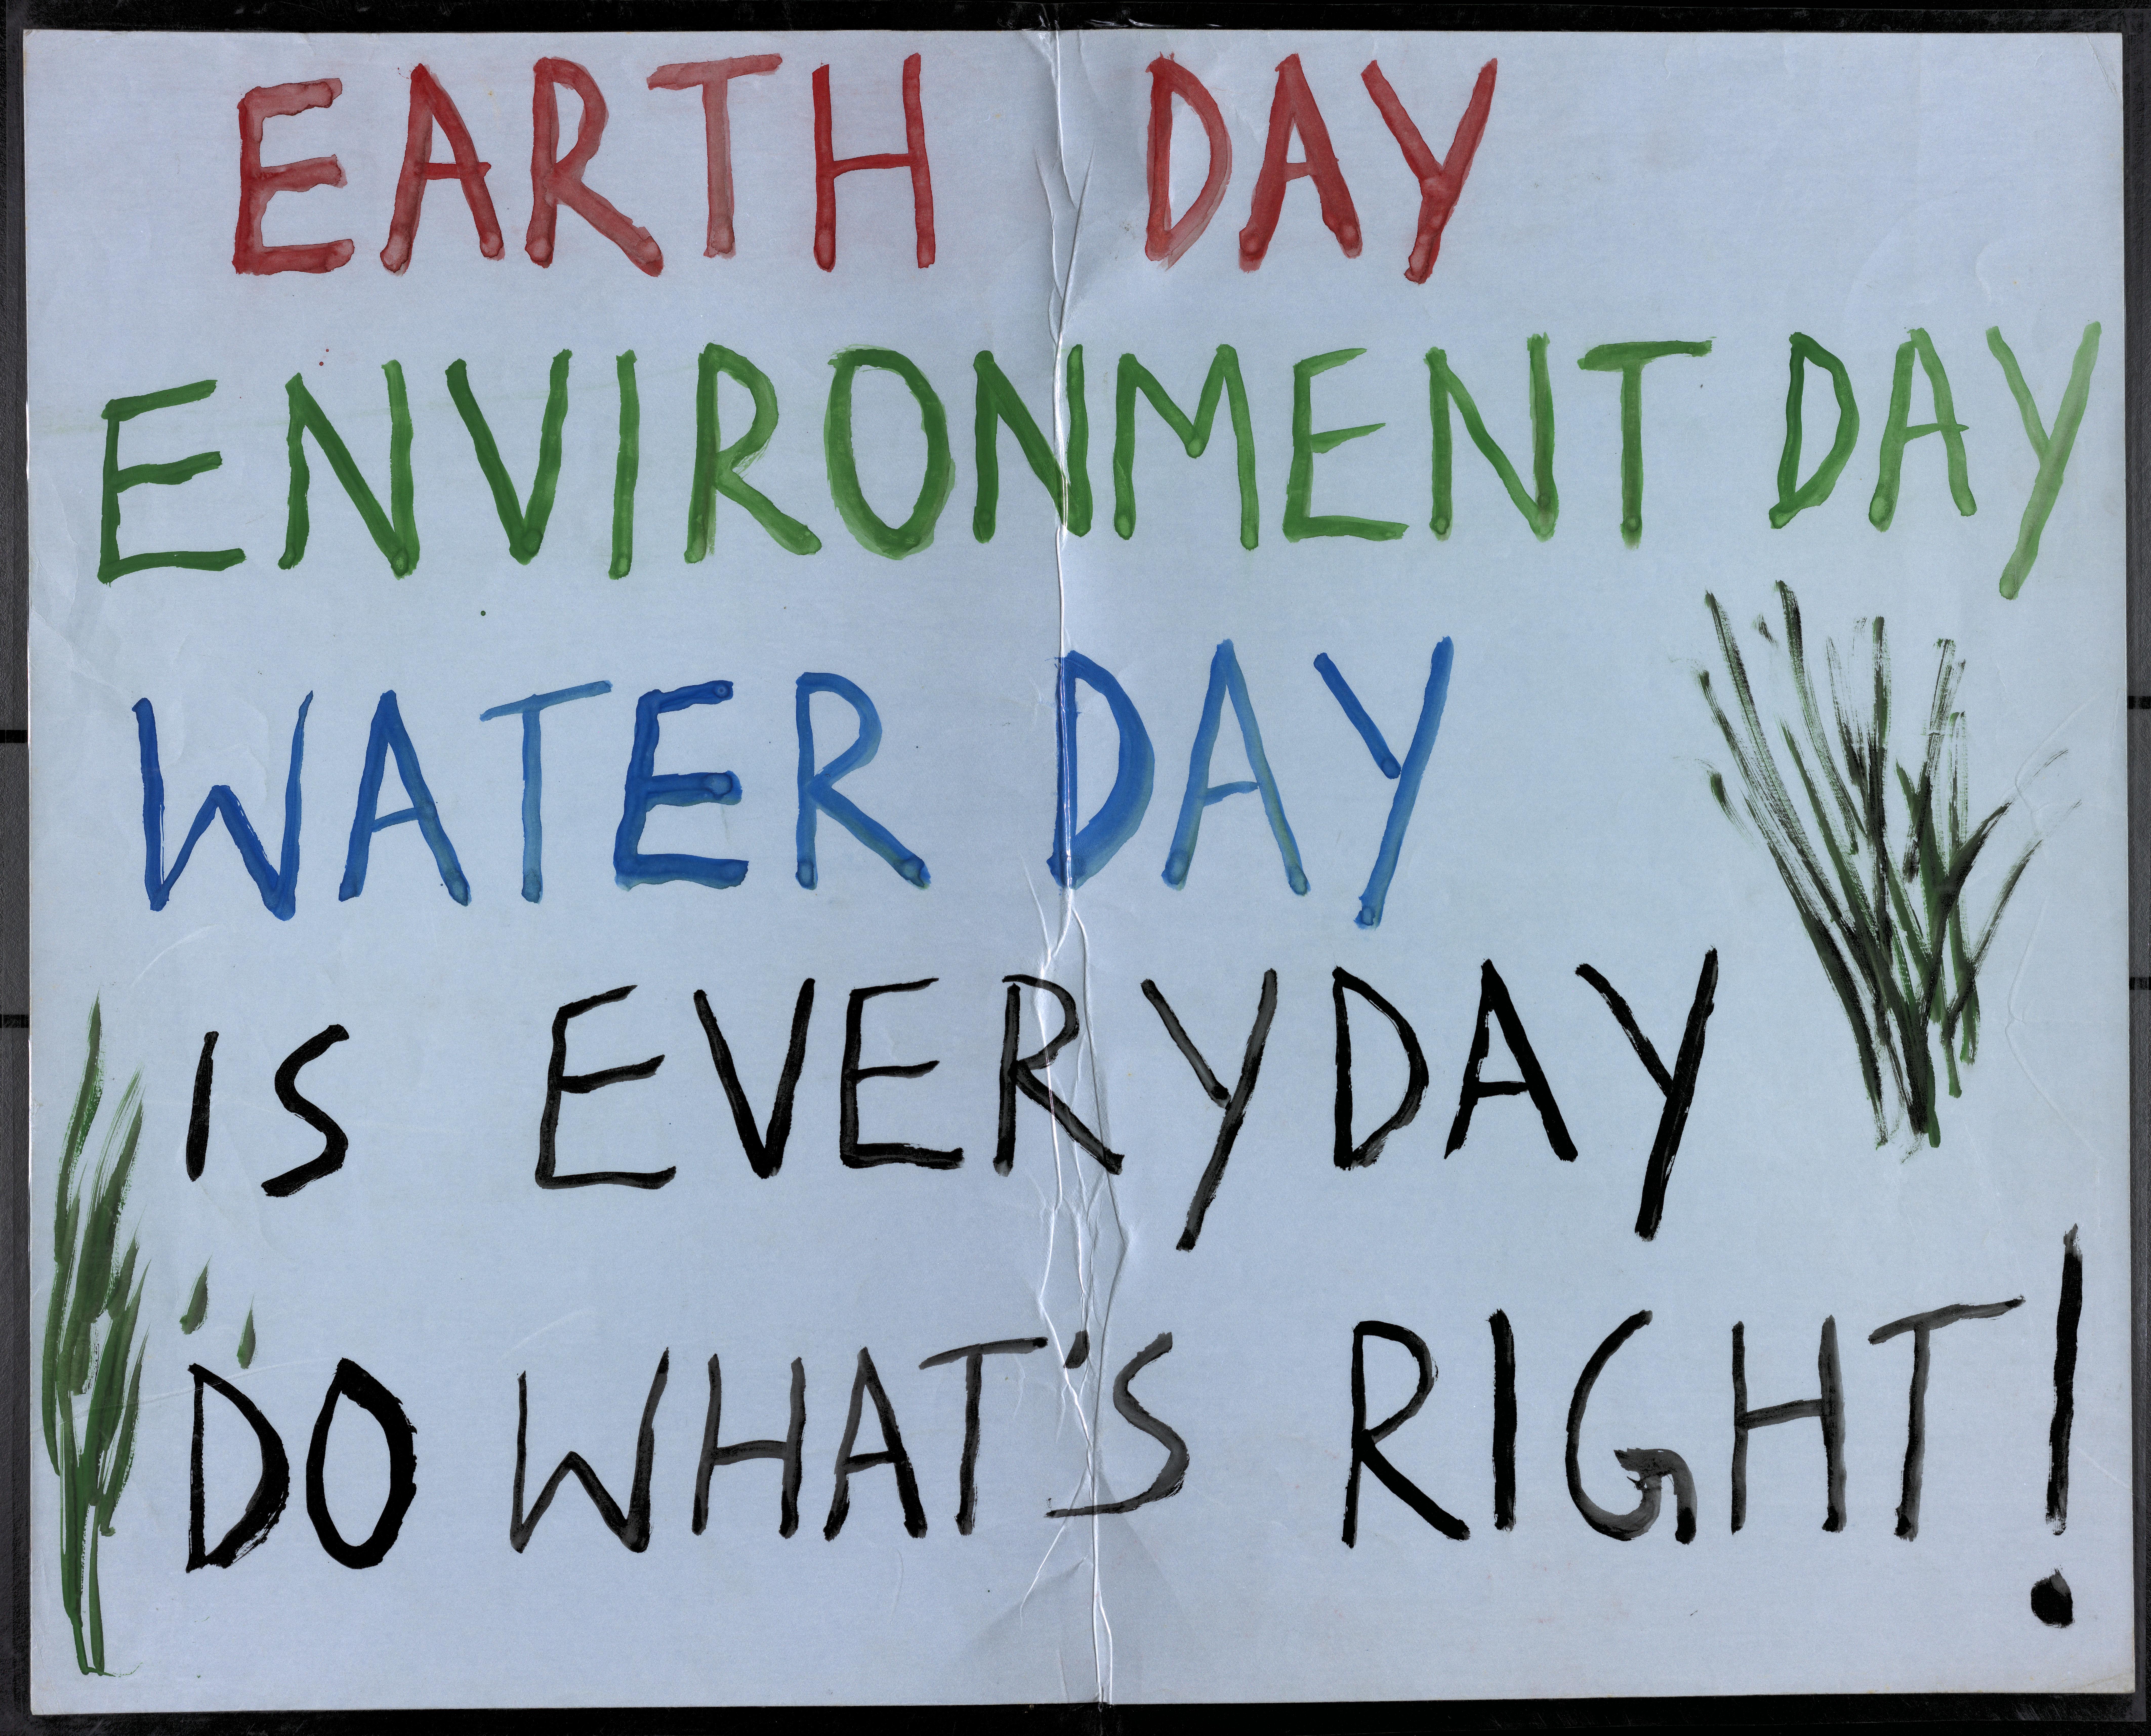 EARTH DAY
ENVIRONMENT DAY
WATER DAY
IS EVERYDAY
DO WHAT'S RIGHT!